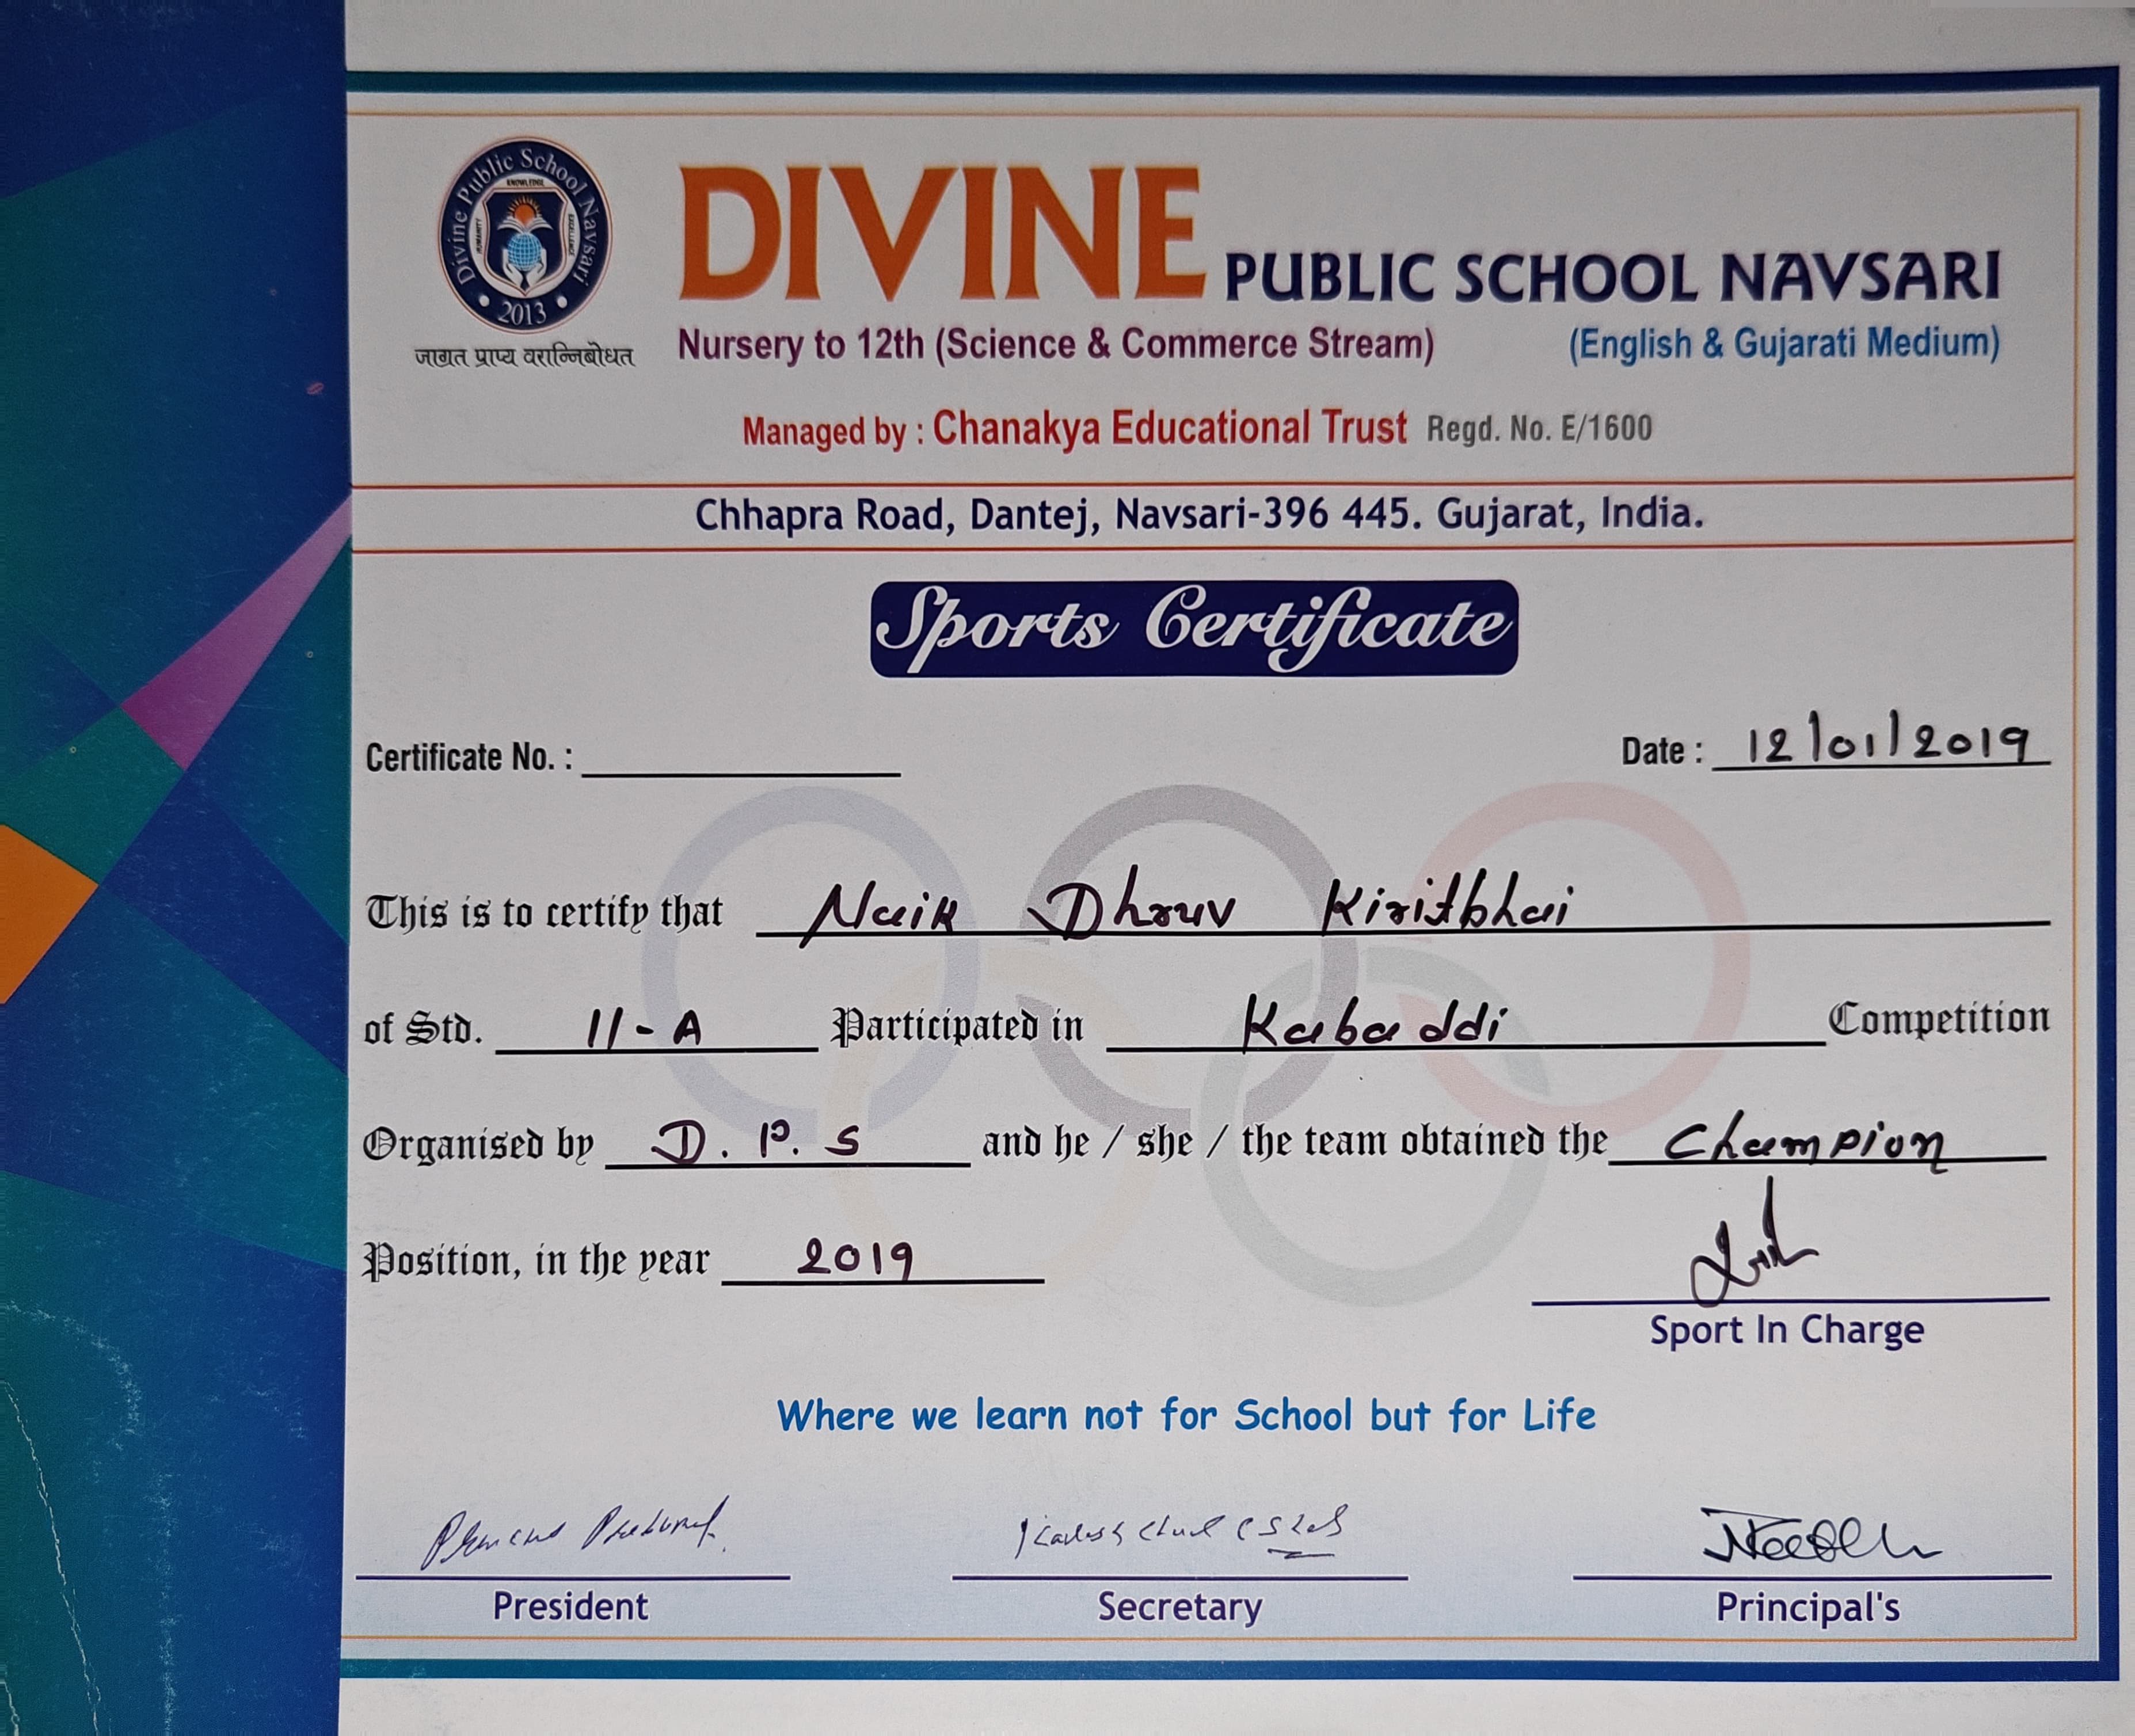 Divine Public School Navsari
KNOWLEDGE
HUMANITY
EXCELLENCE
• 2013 •
जाग्रत प्राप्य वरान्निबोधत
DIVINE PUBLIC SCHOOL NAVSARI
Nursery to 12th (Science & Commerce Stream) (English & Gujarati Medium)
Managed by : Chanakya Educational Trust Regd. No. E/1600
Chhapra Road, Dantej, Navsari-396 445. Gujarat, India.
Sports Certificate
Certificate No. : Date : 12/01/2019
This is to certify that Naik Dhruv Kiritbhai
of Std. 11-A Participated in Kabaddi Competition
Organised by D.P.S and he / she / the team obtained the Champion
Position, in the year 2019
Sport In Charge
Where we learn not for School but for Life
President Secretary Principal's